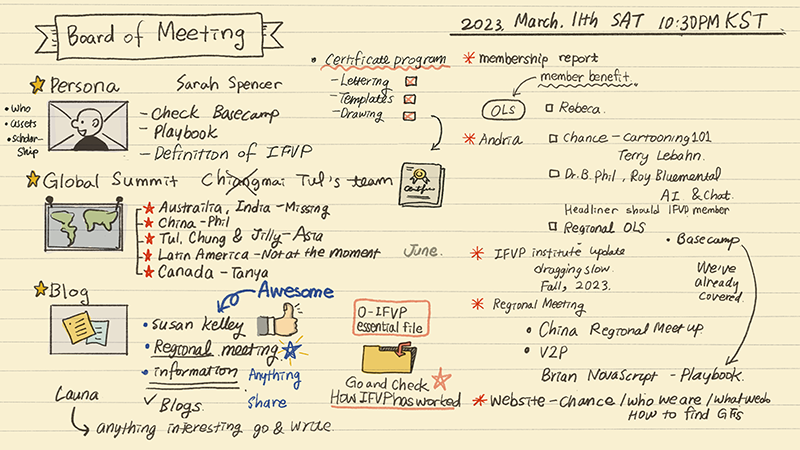 Board of Meeting
2023. March. 11th SAT 10:30PM KST
Persona Sarah Spencer
• who
• assets
• scholar-
ship
- Check Basecamp
- Playbook
- Definition of IFVP
• Certificate program
- Lettering
- Templates
- Drawing
Global Summit Chiangmai Tul's team
Austrailia, India - Missing
China - Phil
Tul, Chung & Jilly - Asia
Latin America - Not at the moment
Canada - Tanya
June.
Blog
Awesome
• Susan Kelley
• Regional meeting.
• information
Anything
Share
✓ Blogs.
Launa
anything interesting go & write.
O-IFVP
essential file
Go and Check
How IFVP has worked
* membership report
member benefit.
OLS
□ Robeca.
* Andria
□ Chance - Cartooning 101
Terry Lebahn.
□ Dr. B. Phil, Roy Bluemental
AI & Chat.
Headliner should IFVP member
□ Regional OLS
* IFVP institute update
dragging slow.
Fall, 2023.
• Basecamp
We've
already
covered.
* Regional Meeting
• China Regional Meet up
• V2P
Brian NovaScript - Playbook.
* Website - chance / who we are / what we do
HOW to find GFs